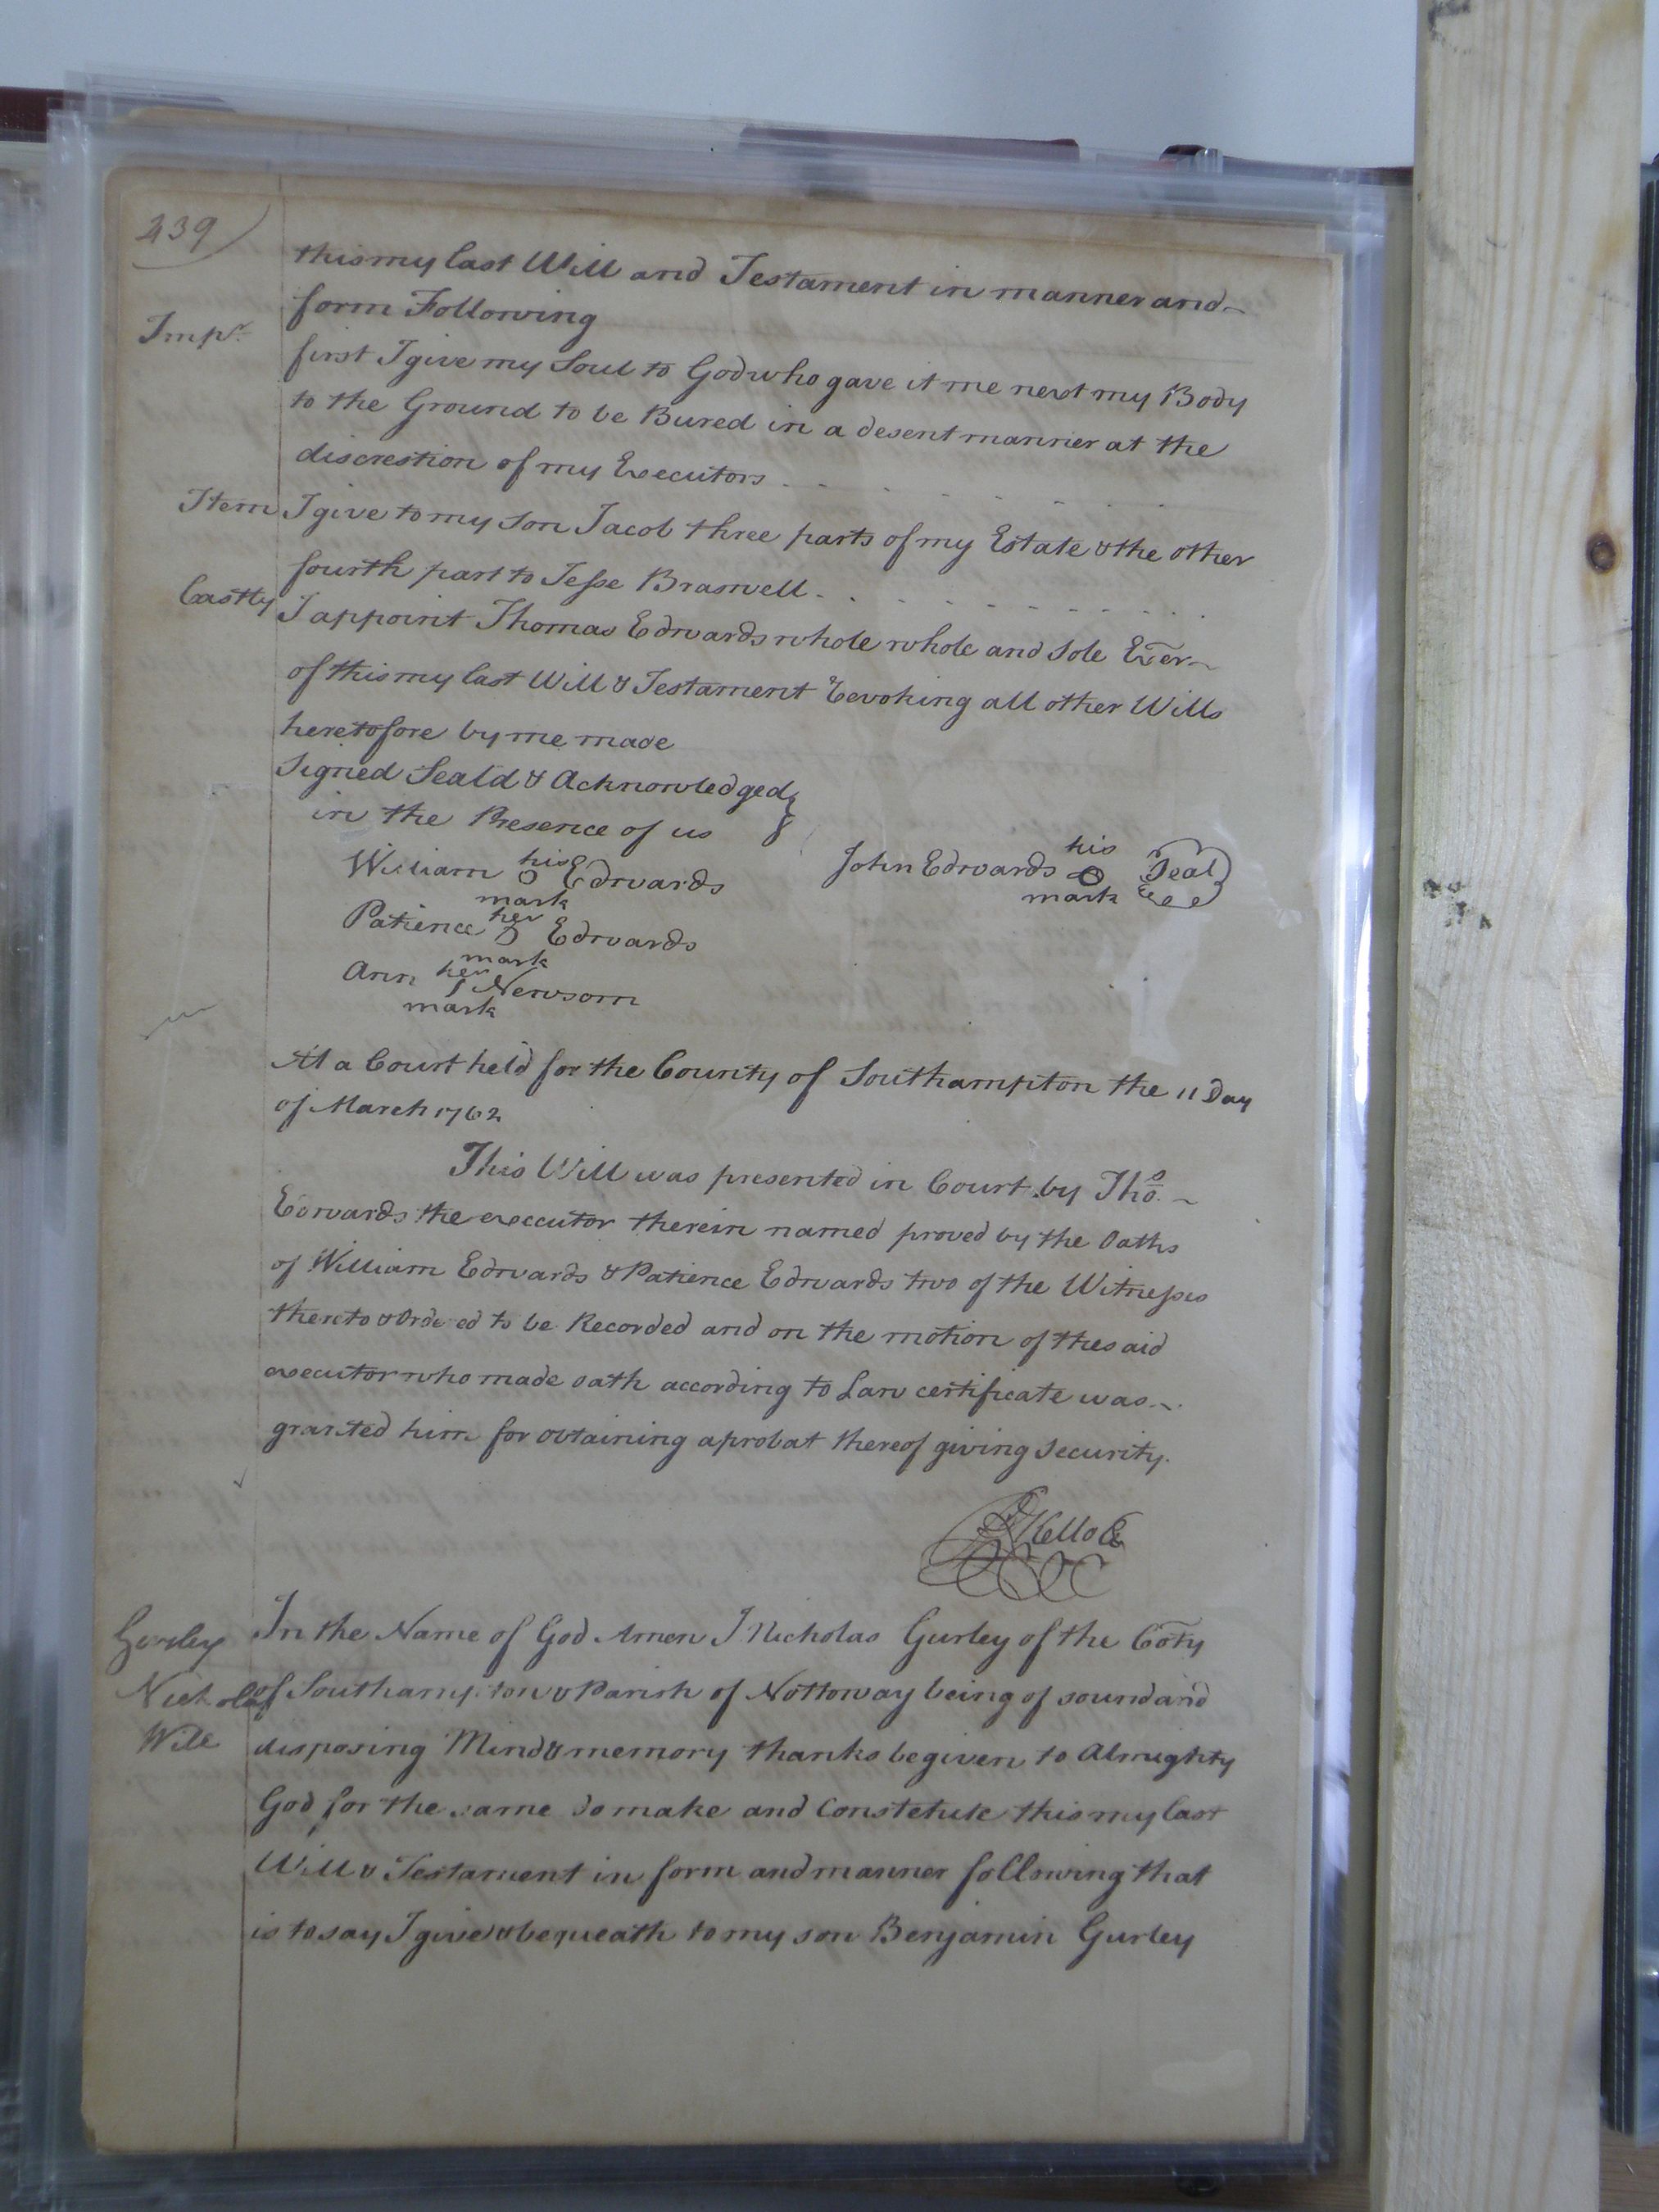 239
this my last Will and Testament in manner and
form Following
Impr. first I give my Soul to God who gave it me next my Body
to the Ground to be Bured in a desent manner at the
discrestion of my Executors
Item I give to my son Jacob three parts of my Estate & the other
fourth part to Jesse Braswell
Lastly I appoint Thomas Edwards whole whole and Sole Exer
of this my last Will & Testament Revoking all other Wills
heretofore by me made
Signed Seald & Acknowledged
in the Presence of us
his
John Edwards O Seal
mark
his
William O Edwards
mark
her
Patience Edwards
mark
her
Ann Newsom
mark
At a Court held for the County of Southampton the 11 Day
of March 1762
This Will was presented in Court by Thos.
Edwards the executor therein named proved by the Oaths
of William Edwards & Patience Edwards two of the Witnesses
thereto & Ordered to be Recorded and on the motion of the said
executor who made oath according to Law certificate was
granted him for obtaining a probat thereof giving Security.
Kello
Gurley In the Name of God Amen I Nicholas Gurley of the Coty
Nicholas of Southampton & Parish of Nottoway being of sound and
Will disposing Mind & memory thanks be given to Almighty
God for the same do make and Constetute this my last
Will & Testament in form and manner following that
is to say I give & bequeath to my son Benjamin Gurley